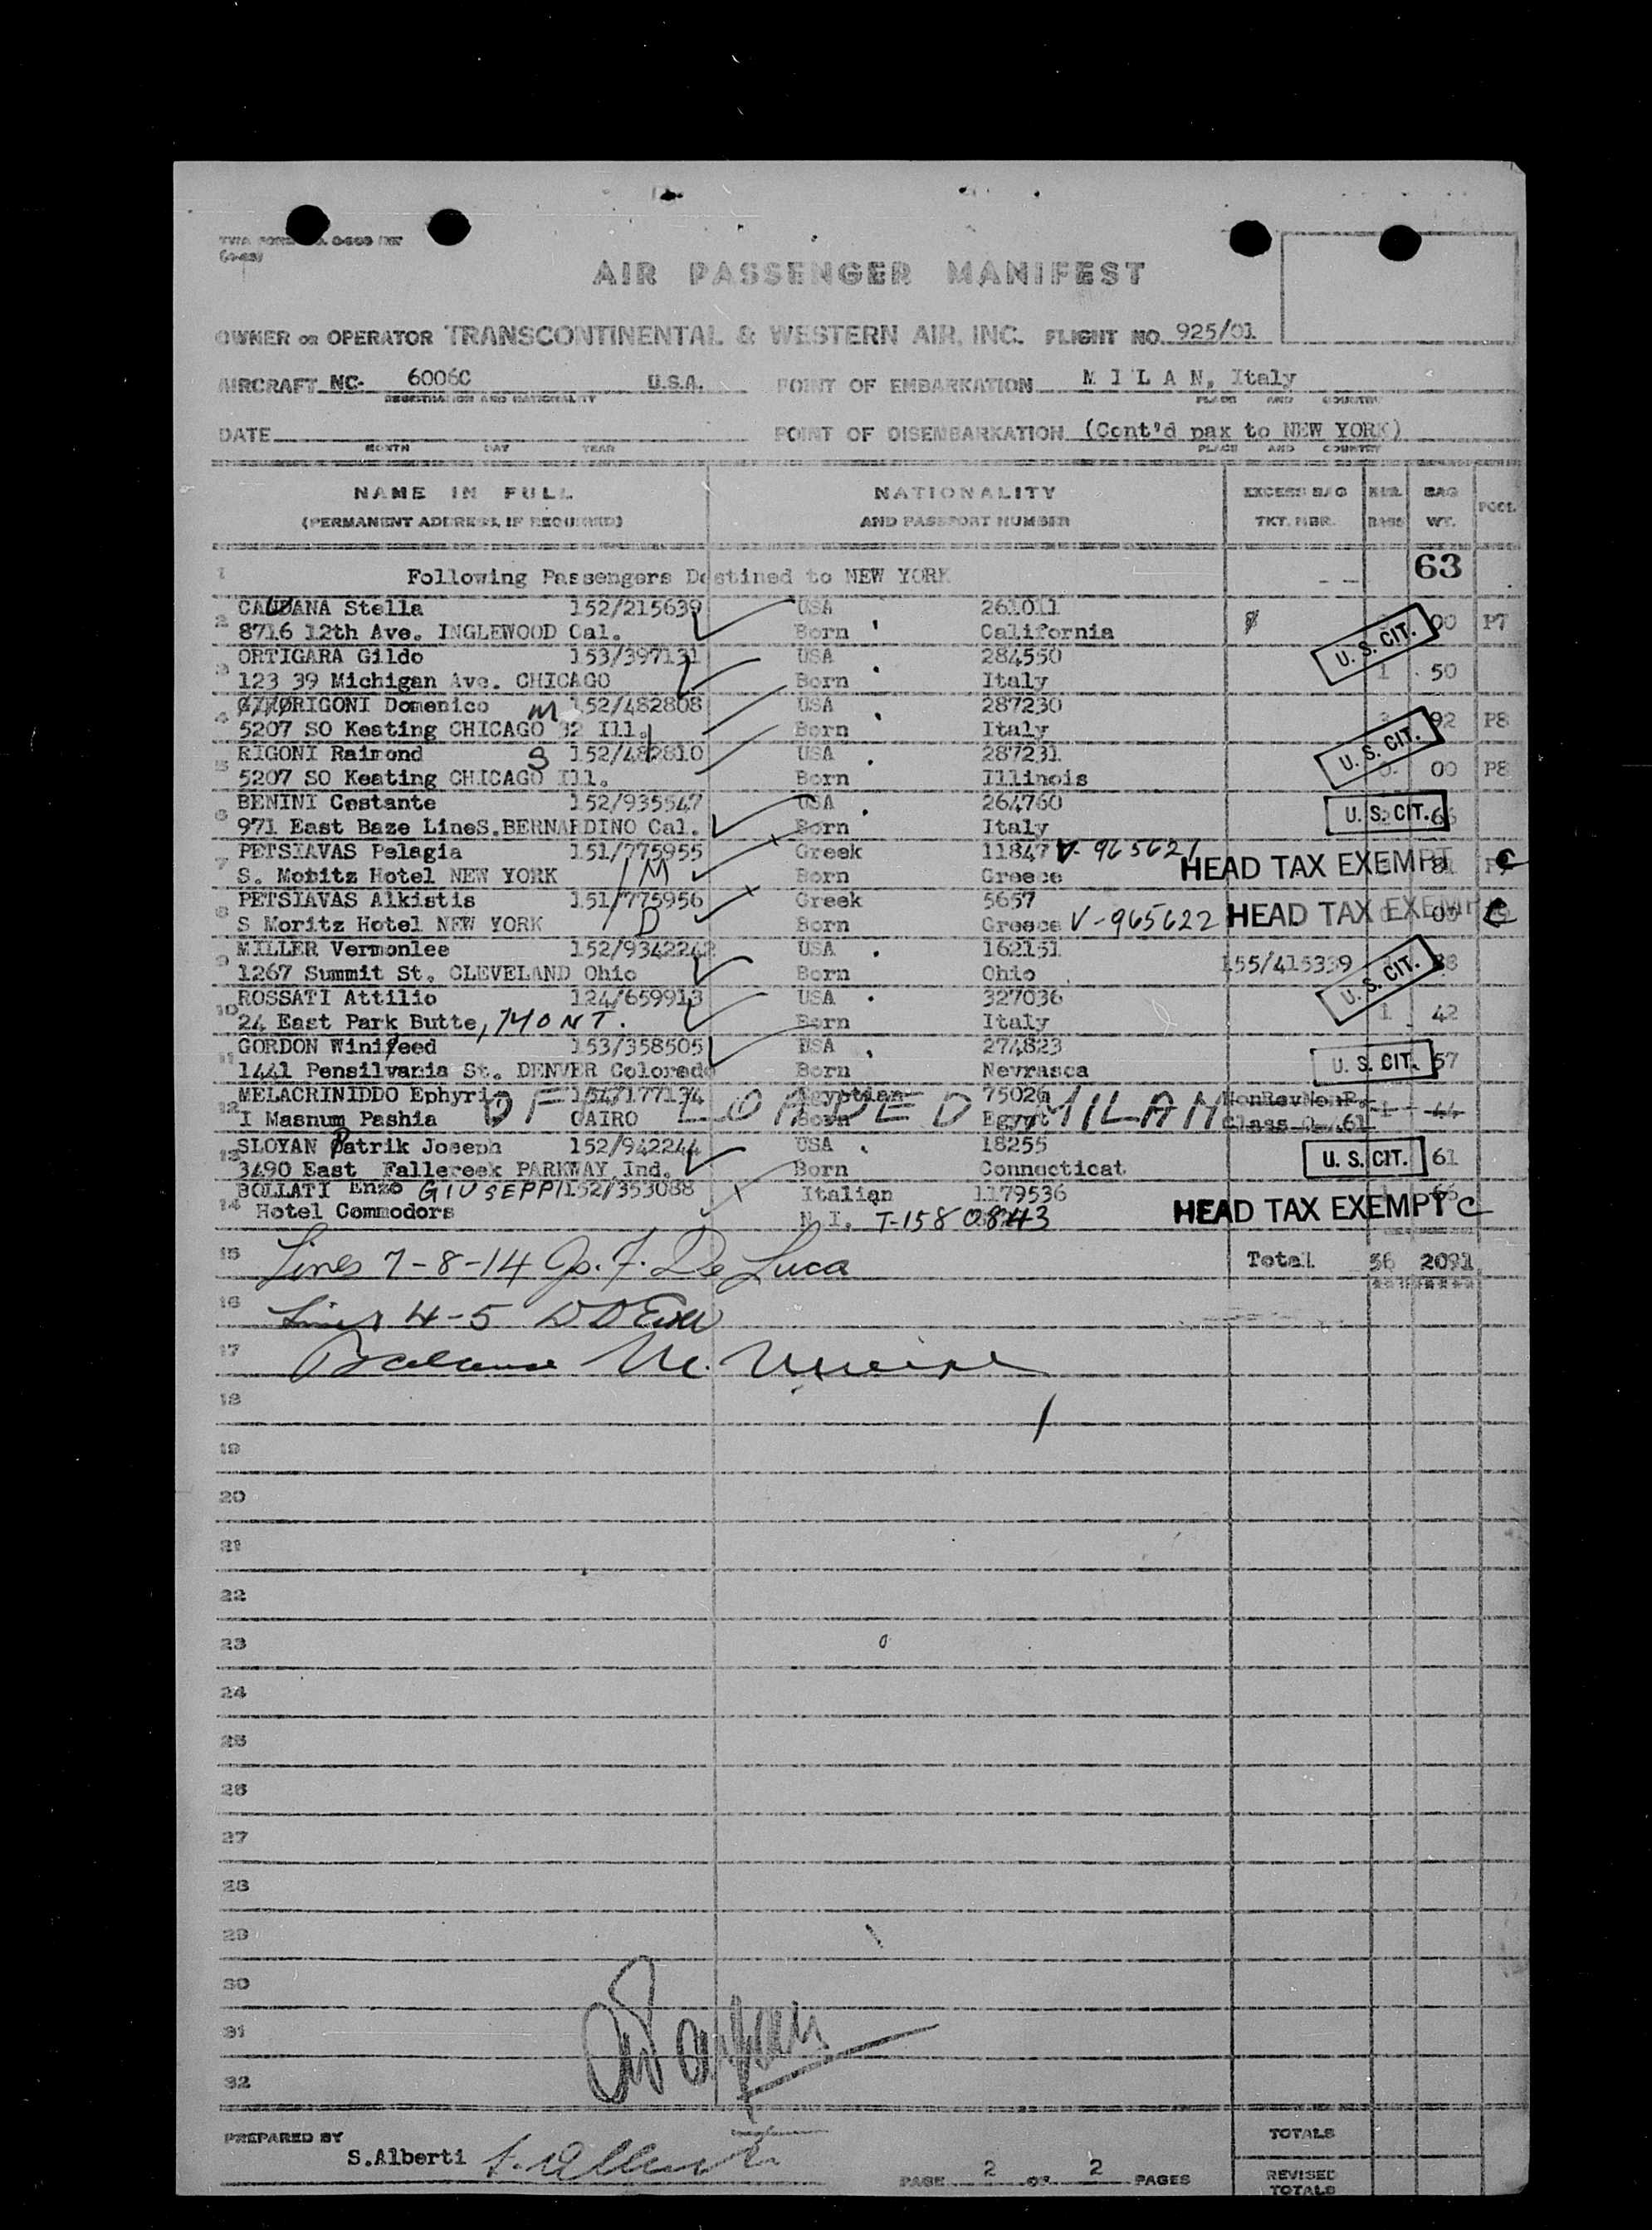 AIR PASSENGER MANIFEST
OWNER OR OPERATOR TRANSCONTINENTAL & WESTERN AIR, INC. FLIGHT NO. 925/01
AIRCRAFT NC- 6006C U.S.A. POINT OF EMBARKATION M I L A N, Italy
REGISTRATION AND NATIONALITY PLACE AND COUNTRY
DATE POINT OF DISEMBARKATION (Cont'd pax to NEW YORK)
MONTH DAY YEAR PLACE AND COUNTRY
NAME IN FULL NATIONALITY EXCESS BAG BAG
(PERMANENT ADDRESS, IF REQUIRED) AND PASSPORT NUMBER TKT. NBR. WT.
63
1 Following Passengers Destined to NEW YORK
2 CAUDANA Stella 152/215639 USA 261011
8716 12th Ave. INGLEWOOD Cal. Born California U. S. CIT. 00 P7
3 ORTIGARA Gildo 153/397131 USA 284550
123 39 Michigan Ave. CHICAGO Born Italy 1 50
4 RIGONI Domenico M 152/482808 USA 287230
5207 SO Keating CHICAGO 32 Ill. Born Italy U. S. CIT. 92 P8
5 RIGONI Raimond S 152/482810 USA 287231
5207 SO Keating CHICAGO Ill. Born Illinois 00 P8
6 BENINI Costante 152/935547 USA 264760
971 East Baze LineS.BERNARDINO Cal. Born Italy U. S. CIT.
7 PETSIAVAS Pelagia 151/775955 Greek 11847 V-965621
S. Moritz Hotel NEW YORK M Born Greece HEAD TAX EXEMPT C
8 PETSIAVAS Alkistis 151/775956 Greek 5657
S Moritz Hotel NEW YORK D Born Greece V-965622 HEAD TAX EXEMPT C
9 MILLER Vermonlee 152/9342242 USA 162151
1267 Summit St. CLEVELAND Ohio Born Ohio 155/415339 U. S. CIT. 38
10 ROSSATI Attilio 124/659913 USA 327036
24 East Park Butte, MONT. Born Italy 1 42
11 GORDON Winifeed 153/358505 USA 274823
1441 Pensilvania St. DENVER Colorado Born Nevrasca U. S. CIT. 57
12 MELACRINIDDO Ephyri 154/177134 Egyptian 75026 NonRevNonP.
OF LOADED MILAN
I Masnum Pashia CAIRO Born Egypt 1 44
13 SLOYAN Patrik Joseph 152/942244 USA 18255
3490 East Fallcreek PARKWAY Ind. Born Connecticat U. S. CIT. 61
14 BOLLATI Enzo GIUSEPPI 152/353088 Italian 1179536
Hotel Commodors N.I. T-1580843 HEAD TAX EXEMPT C
15 Lines 7-8-14 Jo. F. De Luca Total 36 2091
16 Lines 4-5
17 Balance M.
18
19
20
21
22
23
24
25
26
27
28
29
30
31
32
PREPARED BY TOTALS
S.Alberti
PAGE 2 OF 2 PAGES REVISED
TOTALS